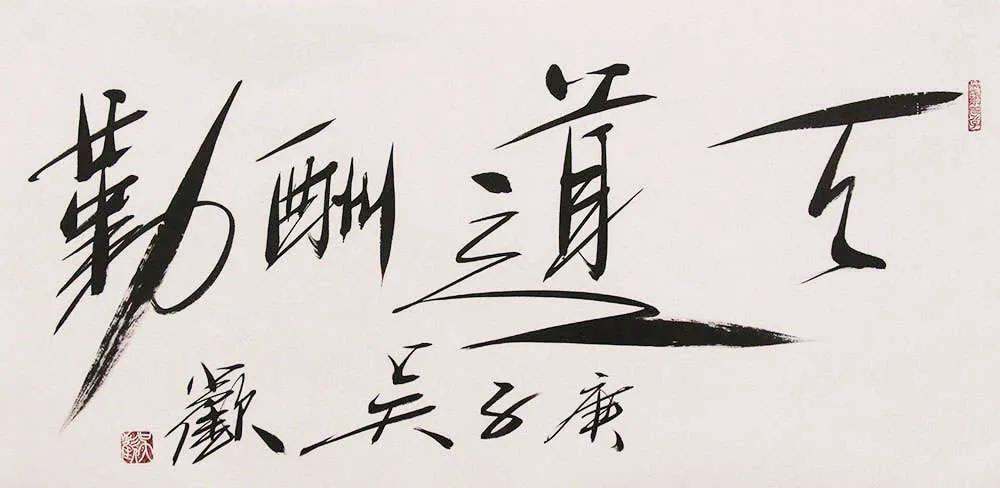 天道酬勤
庚子吴歡